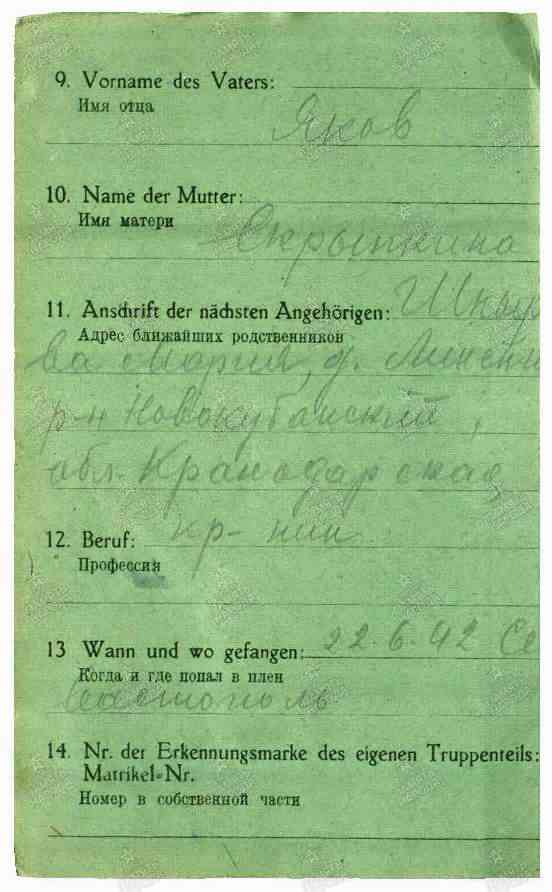 9. Vorname des Vaters:
Имя отца
Яков
10. Name der Mutter:
Имя матери
Скрыпкина
11. Anschrift der nächsten Angehörigen:
Адрес ближайших родственников
ва Мария, д.
р-н Новокубанский,
обл. Кранодарская
12. Beruf: кр-нин
Профессия
13 Wann und wo gefangen: 22.6.42 Се
Когда и где попал в плен
вастополь
14. Nr. der Erkennungsmarke des eigenen Truppenteils:
Matrikel-Nr.
Номер в собственной части